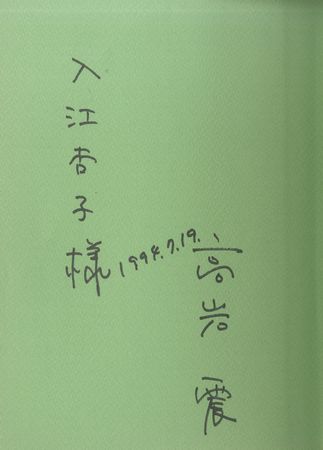 入江杏子様
1994.7.19.
高岩 震